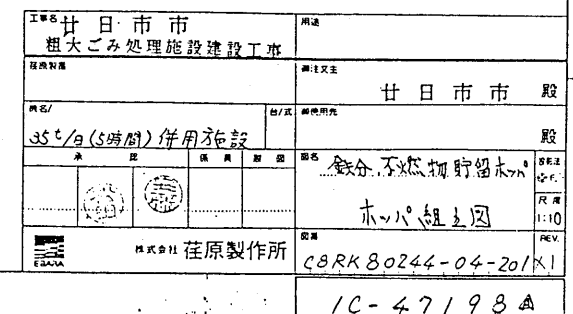 工事名 廿日市市
粗大ごみ処理施設建設工事
用途
荏原製番
御注文主
廿日市市 殿
機名/
台/式
御使用先
35t/日(5時間)併用施設
殿
承 認
係 員
製 図
図名
鉄分、不燃物貯留ホッパ
ホッパ組立図
尺度
1:10
EBARA
株式会社 荏原製作所
図番
C8RK80244-04-201
REV.
X1
1C-47198